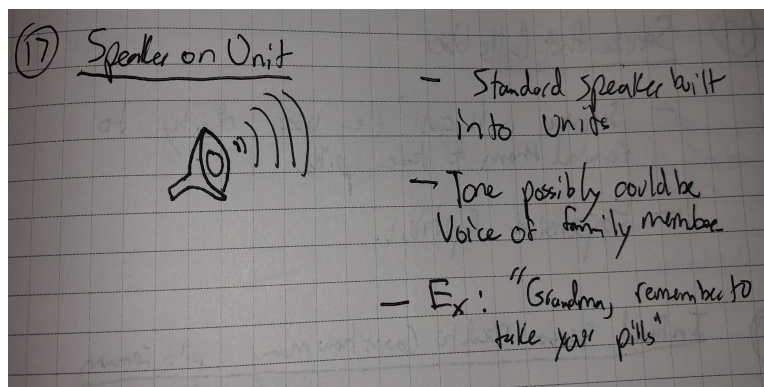 17 Speaker on Unit
- Standard speaker built
into Units
- Tone possibly could be
Voice of family member
- Ex: "Grandma, remember to
take your pills"